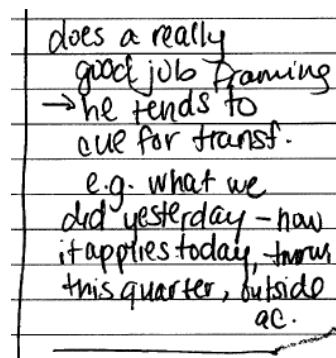 does a really
good job framing
→ he tends to
cue for transf.
e.g. what we
did yesterday - how
it applies today, tmrw,
this quarter, outside
ac.